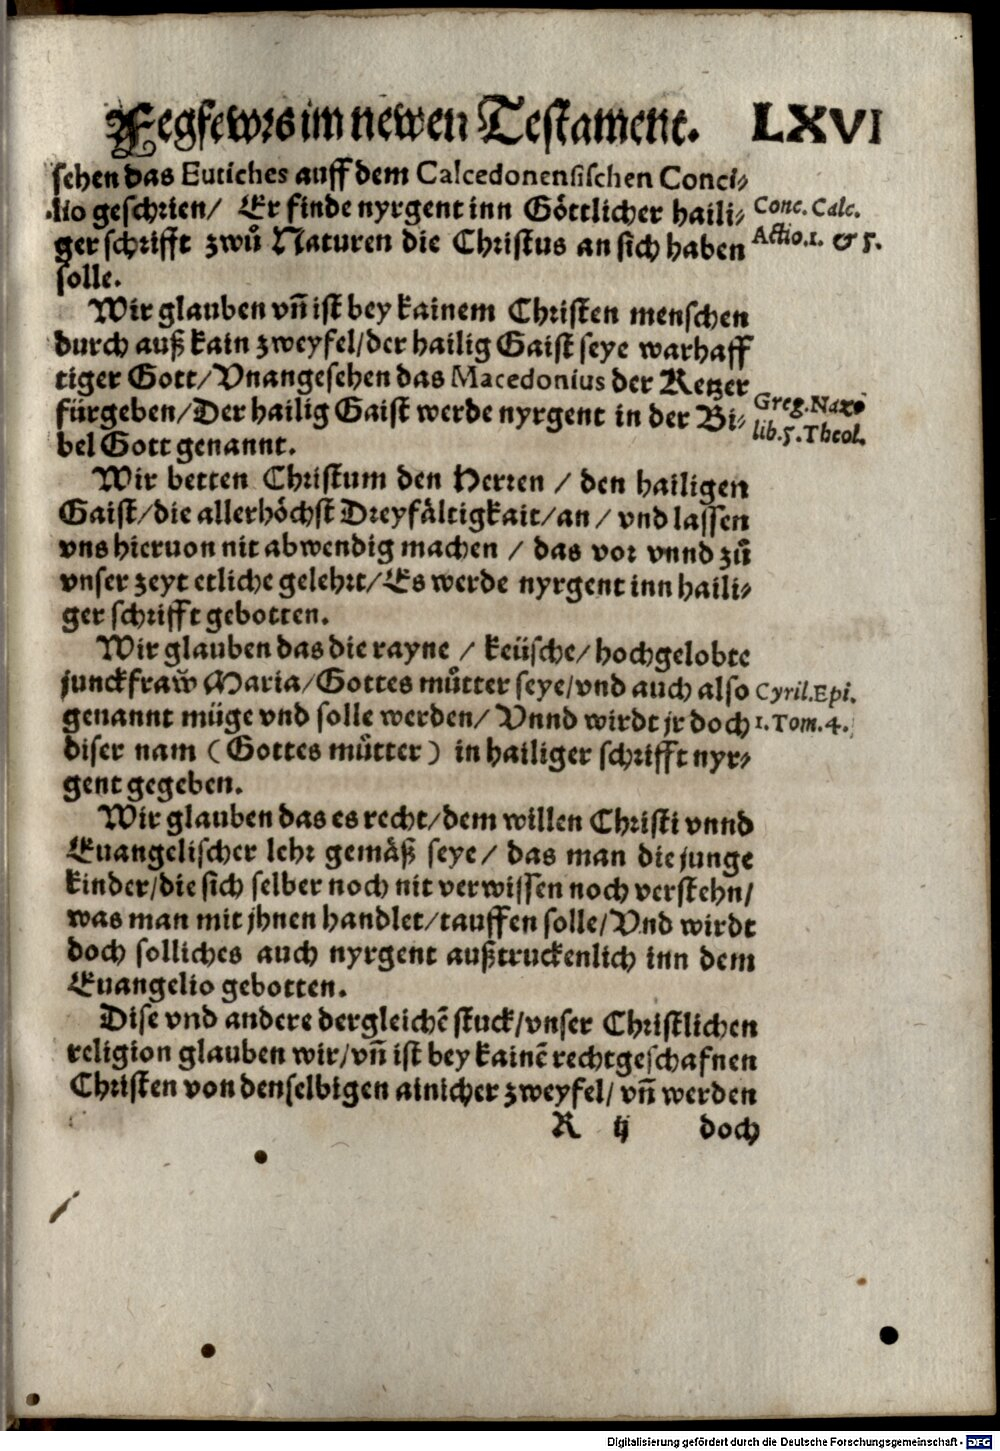 Fegfewrs im newen Testament. LXVI
sehen das Eutiches auff dem Calcedonensischen Conci⸗
lio geschrien/ Er finde nyrgent inn Göttlicher haili⸗
Conc. Calc.
ger schrifft zwů Naturen die Christus an sich haben
Actio.1. & 5.
solle.
Wir glauben vñ ist bey kainem Christen menschen
durch auß kain zweyfel/der hailig Gaist seye warhaff
tiger Gott/Vnangesehen das Macedonius der Ketzer
fürgeben/Der hailig Gaist werde nyrgent in der Bi⸗
Greg.Naz.
lib.5.Theol.
bel Gott genannt.
Wir betten Christum den Herren / den hailigen
Gaist/die allerhöchst Dreyfältigkait/an / vnd lassen
vns hieruon nit abwendig machen / das vor vnnd zů
vnser zeyt etliche gelehrt/Es werde nyrgent inn haili⸗
ger schrifft gebotten.
Wir glauben das die rayne / keüsche/hochgelobte
junckfraw Maria/Gottes můtter seye/vnd auch also
Cyril.Epi.
genannt müge vnd solle werden/ Vnnd wirdt jr doch
1.Tom.4.
diser nam (Gottes můtter) in hailiger schrifft nyr⸗
gent gegeben.
Wir glauben das es recht/dem willen Christi vnnd
Euangelischer lehr gemäß seye/ das man die junge
kinder/die sich selber noch nit verwissen noch verstehn/
was man mit jhnen handlet/tauffen solle/Vnd wirdt
doch solliches auch nyrgent außtruckenlich inn dem
Euangelio gebotten.
Dise vnd andere dergleichẽ stuck/vnser Christlichen
religion glauben wir/vñ ist bey kainẽ rechtgeschafnen
Christen von denselbigen ainicher zweyfel/ vñ werden
R ij doch
Digitalisierung gefördert durch die Deutsche Forschungsgemeinschaft - DFG